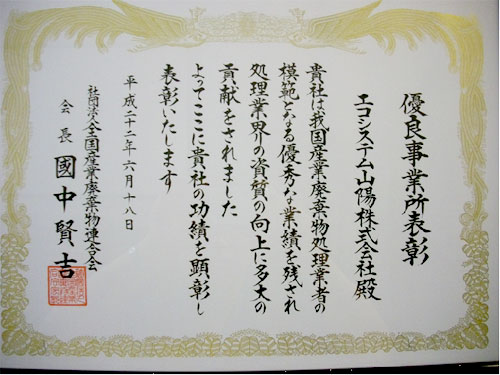 優良事業所表彰
エコシステム山陽株式会社殿
貴社は我国産業廃棄物処理業者の
模範となる優秀な業績を残され
処理業界の資質の向上に多大の
貢献をされました
よってここに貴社の功績を顕彰し
表彰いたします
平成二十二年六月十八日
社団法人全国産業廃棄物連合会
会長 國中賢吉